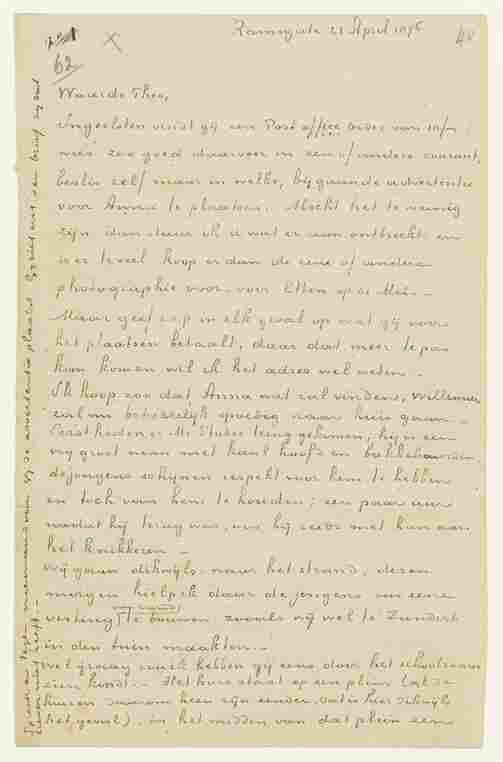 Ramsgate 21 April 1876
62
Waarde Theo,
Ingesloten vindt gij een Post office order van
wees zoo goed daarvoor in een of andere courant,
beslis zelf maar in welke, bijgaande advertentie
voor Anna te plaatsen. Mocht het te weinig
zijn dan stuur ik u wat er aan ontbreekt en
is er teveel koop er dan de eene of andere
photographie voor, voor Etten op 10 Mei.
Maar geef s.v.p in elk geval op wat gij voor
het plaatsen betaalt, daar dat meer te pas
kan komen wil ik het adres wel weten.
Ik hoop zoo dat Anna wat zal vinden, Willemien
zal nu betrekkelijk spoedig naar huis gaan.
Eergisteren is Mr Stokes terug gekomen, hij is een
vrij groot man met kaal hoofd en bakkebaarden,
de jongens schijnen respekt voor hem te hebben
en toch van hem te houden; een paar uur
nadat hij terug was, was hij reeds met hun aan
het knikkeren –
Wij gaan dikwijls naar het strand, dezen
morgen hielp ik daar de jongens om eene
vesting van zand te bouwen zooals wij wel te Zundert
in den tuin maakten. –
Wel graag zou ik hebben gij eens door het schoolraam
kondt. – Het huis staat op een plein (al de
huizen daarom heen zijn eender, dat is hier dikwijls
het geval). in het midden van dat plein een